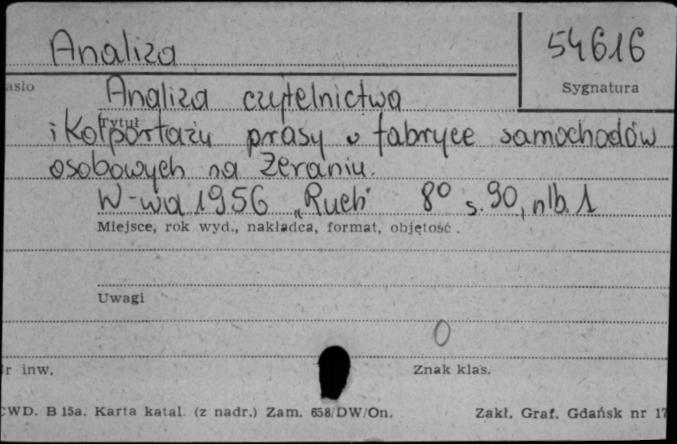 Analiza
54616
asło
Sygnatura
Analiza czytelnictwa
Tytuł
i kolportażu prasy w fabryce samochodów
osobowych na Żeraniu.
W-wa 1956 „Ruch" 8° s. 90, nlb. 1
Miejsce, rok wyd., nakładca, format, objętość.
Uwagi
0
r inw.
Znak klas.
CWD. B 15a. Karta katal. (z nadr.) Zam. 658/DW/On.
Zakł. Graf. Gdańsk nr 17